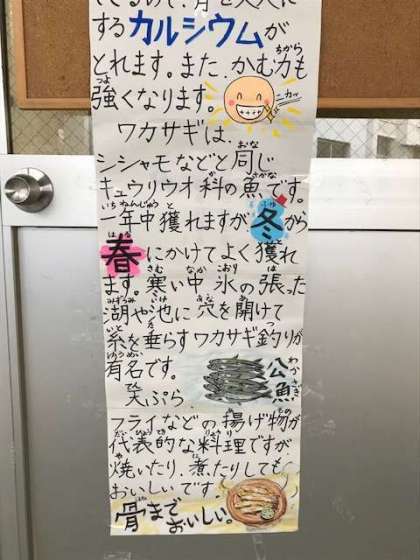 するカルシウムが
とれます。また、かむ力も
強くなります。
ワカサギは、
シシャモなどと同じ
キュウリウオ科の魚です。
一年中獲れますが冬から
春にかけてよく獲れ
ます。寒い中 氷の張った
湖や池に穴を開けて
糸を垂らすワカサギ釣りが
有名です。
公魚
天ぷら
フライなどの揚げ物が
代表的な料理ですが、
焼いたり、煮たりしても
おいしいです。
骨まで
おいしい。